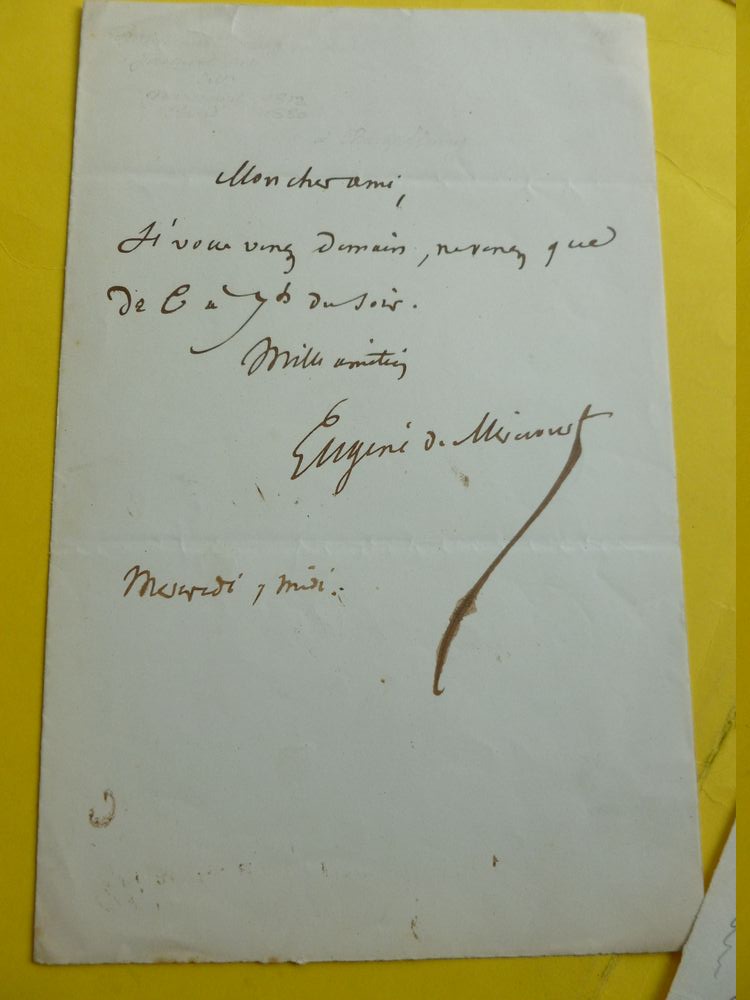 Mon cher ami,
Si vous venez demain, ne venez que
de 6 à 7h du soir.
Mille amitiés
Eugène de Mirecourt
Mercredi, midi.